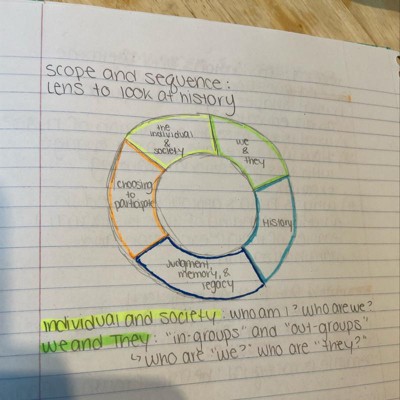 scope and sequence:
lens to look at history
the
individual
&
society
we
&
they
History
Judgment,
memory, &
legacy
choosing
to
participate
individual and society: who am I? who are we?
we and They: "in-groups" and "out-groups"
↳ who are "we?" who are "they?"